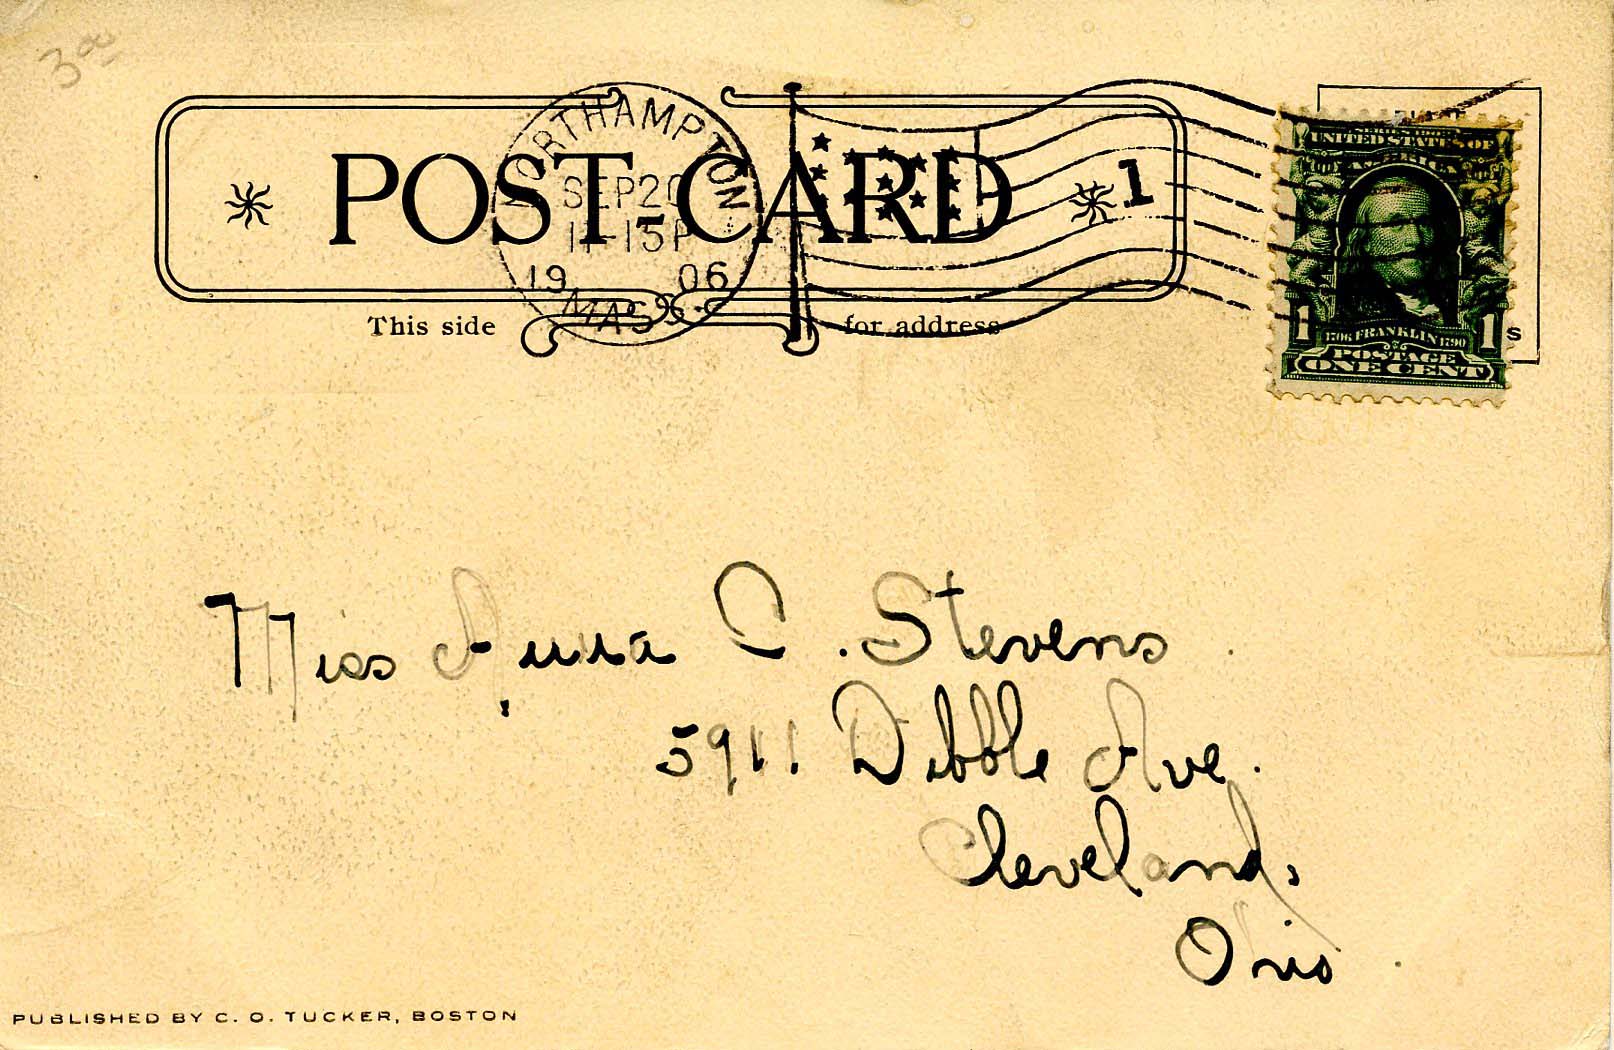 3 00
NORTHAMPTON
SEP 20
11-15P
1906
MASS.
POST-CARD
1
This side for address
UNITED STATES OF
AMERICA
1 1706 FRANKLIN 1790 1
POSTAGE
ONE CENT
Miss Anna C. Stevens.
5911 Dibble Ave.
Cleveland,
Ohio.
PUBLISHED BY C. O. TUCKER, BOSTON